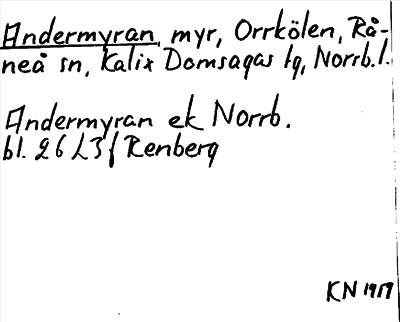 Andermyran, myr, Orrkölen, Rå-
neå sn, Kalix Domsagas tg, Norrb. l.
Andermyran ek Norrb.
bl. 26 L3 f Renberg
KN 1917